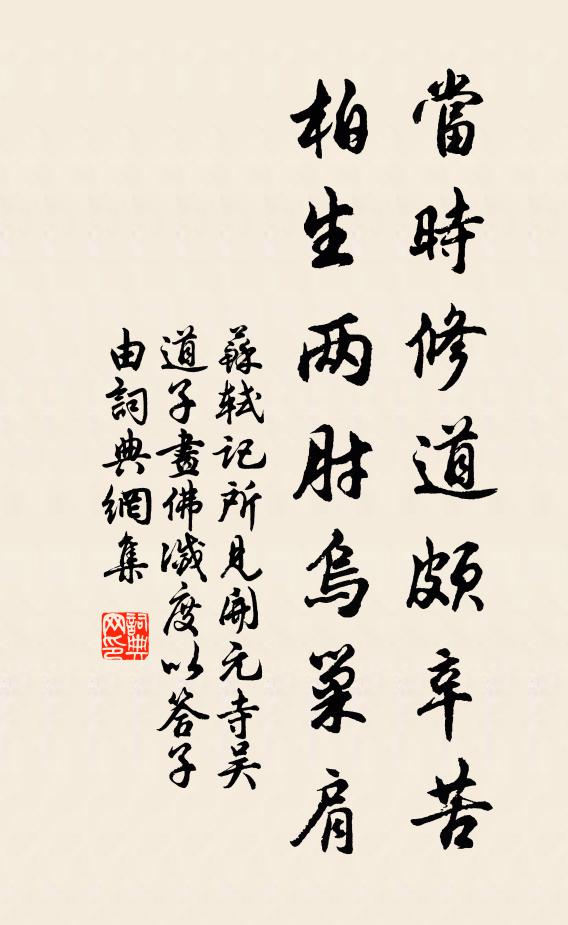 當時修道頗辛苦
柏生两肘烏巢肩
蘇軾記所見開元寺吴
道子畫佛滅度以答子
由詞典網集
詞典
网印